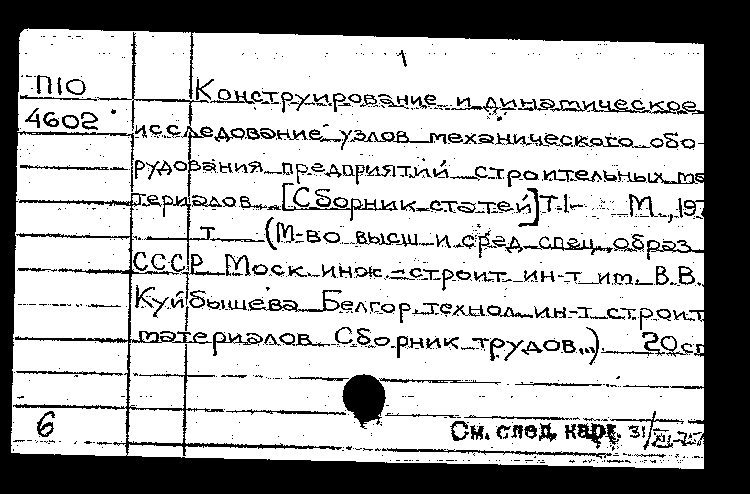 1
П10 Конструирование и динамическое
4602 исследование узлов механического обо-
рудования предприятий строительных ма
териалов. [Сборник статей] Т.1– М., 197
т. (М-во высш и сред спец. образ.
СССР. Моск. инж.-строит ин-т им. В.В.
Куйбышева Белгор. технол. ин-т строит
материалов. Сборник трудов...) 20см
6 См. след. карт. 31/XII-